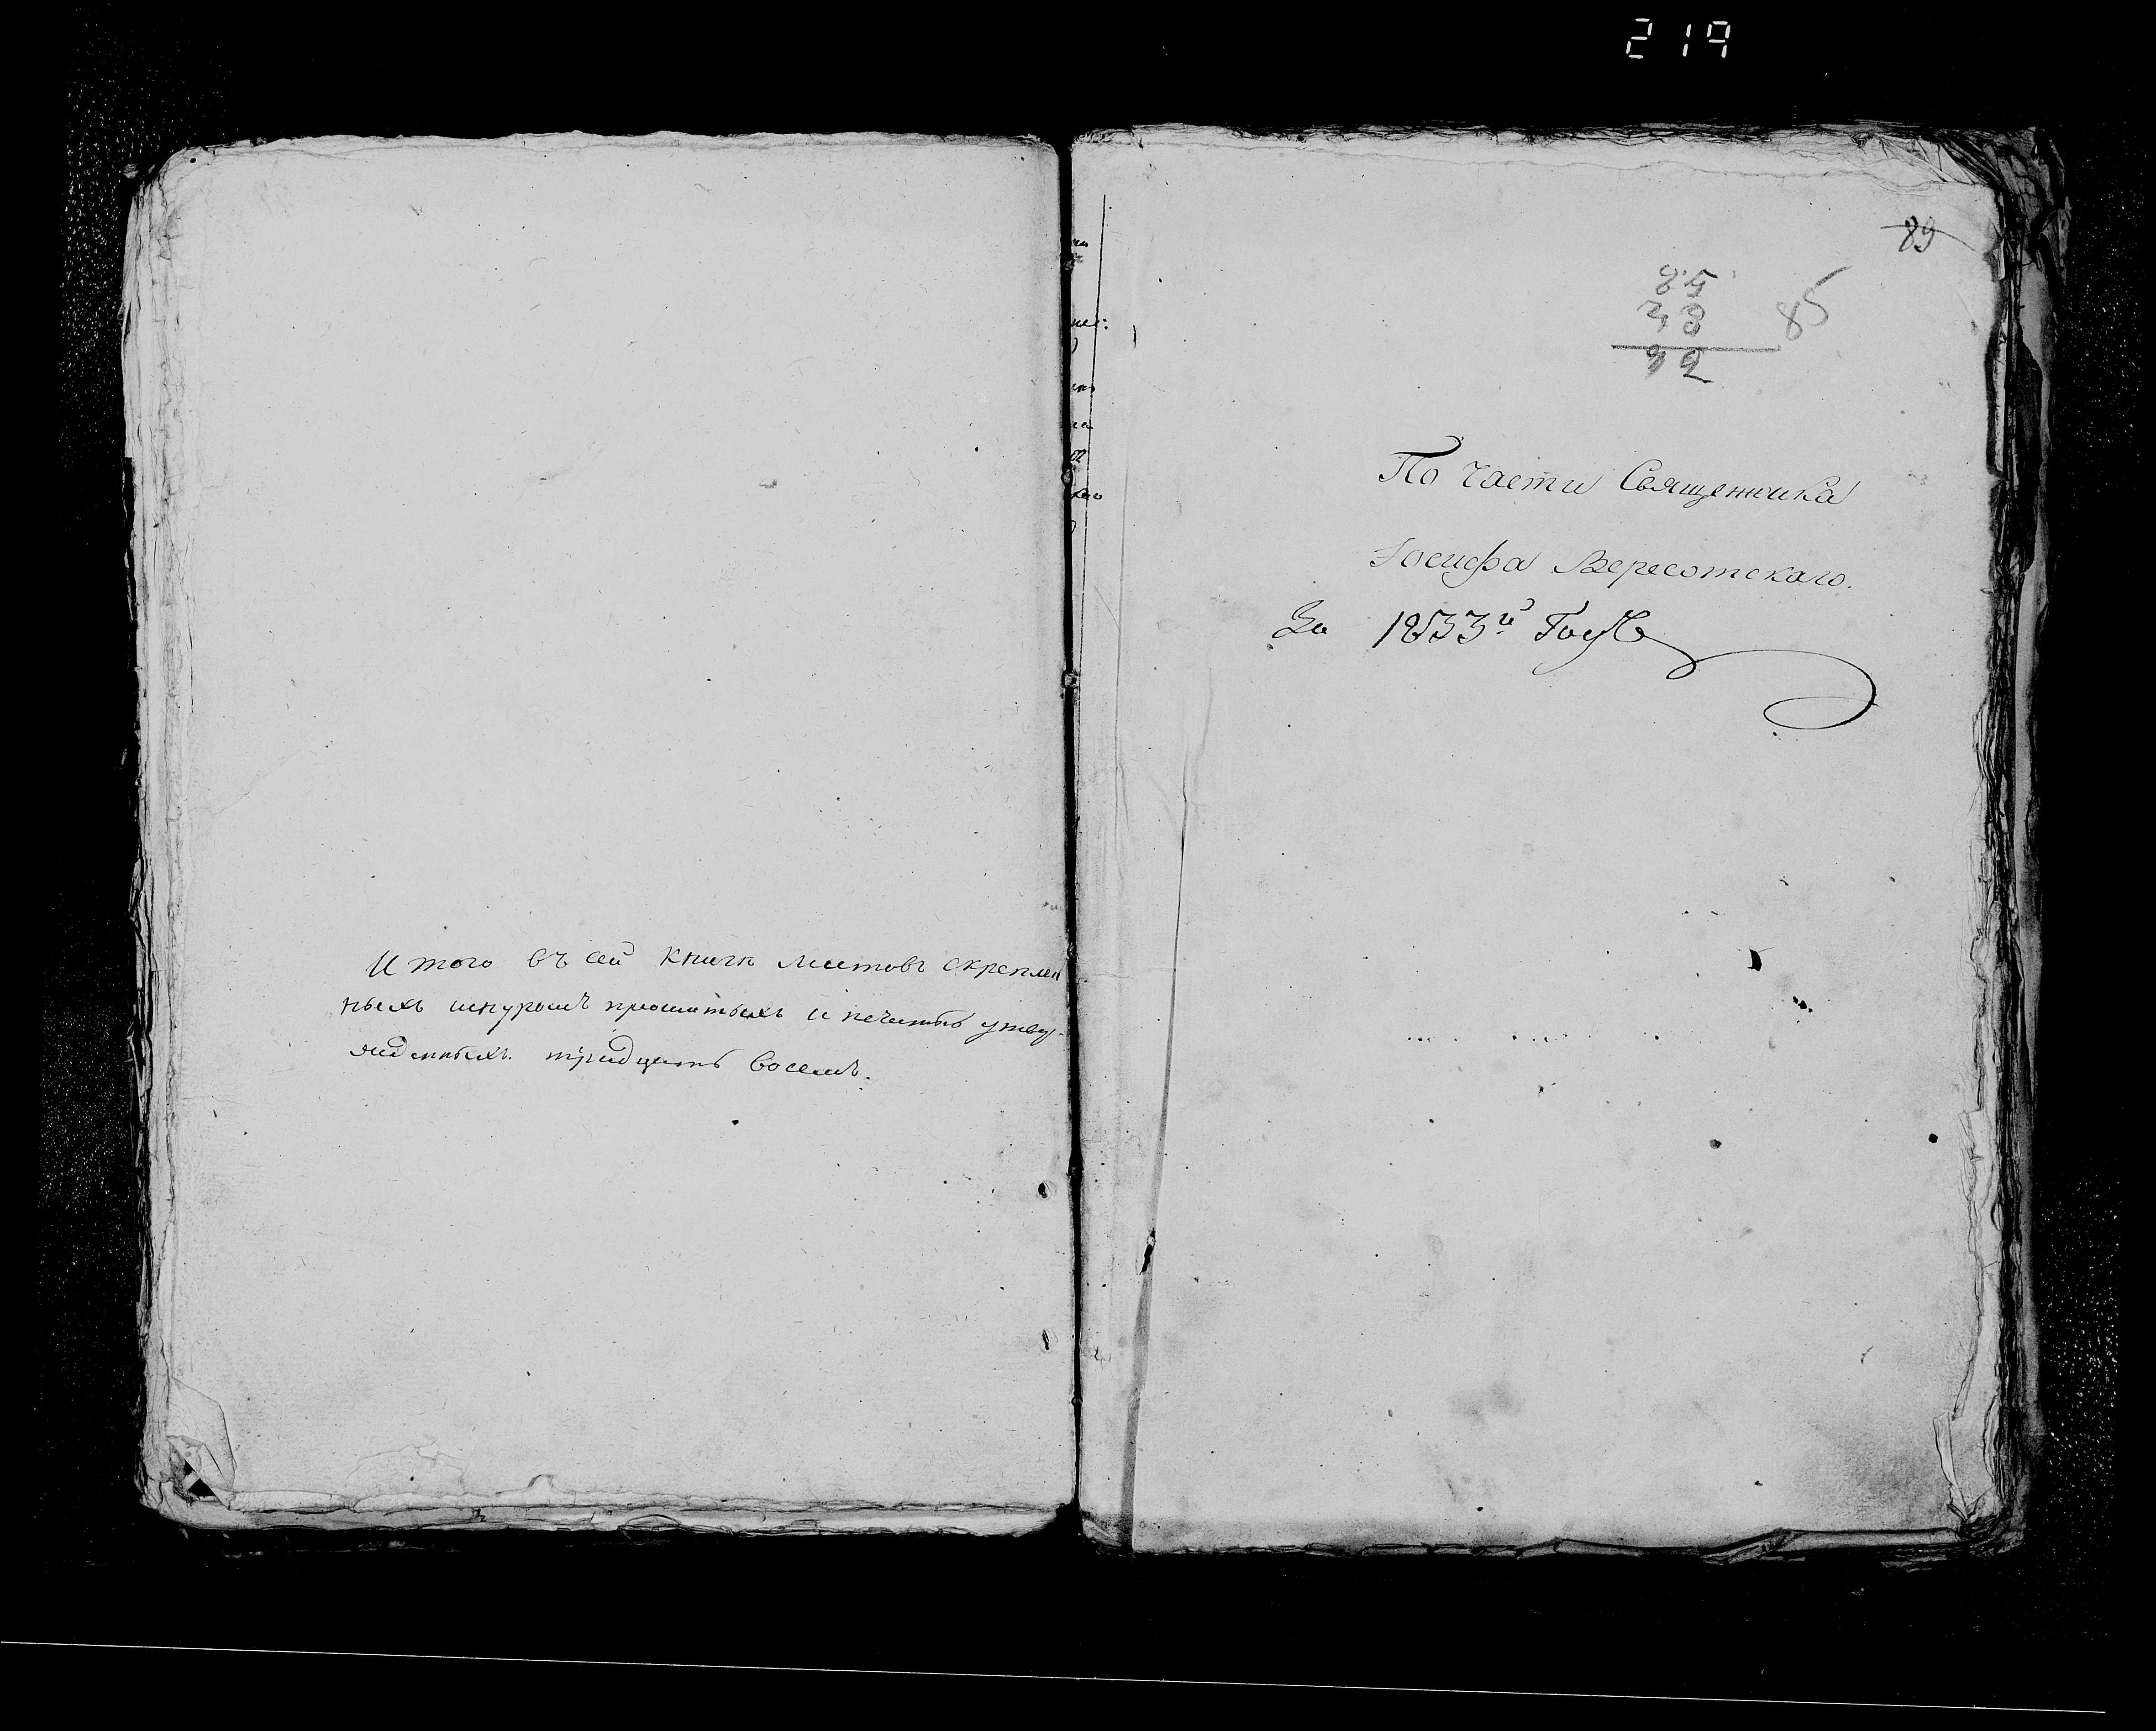 219
Итого въ сей книгѣ листовъ скреплен
ныхъ шнуромъ прошитыхъ и печатью утвер-
жденныхъ тридцать восемь.
89
85
85
38
92
По части Священника
Іосифа Вересотскаго.
За 1833й Годъ